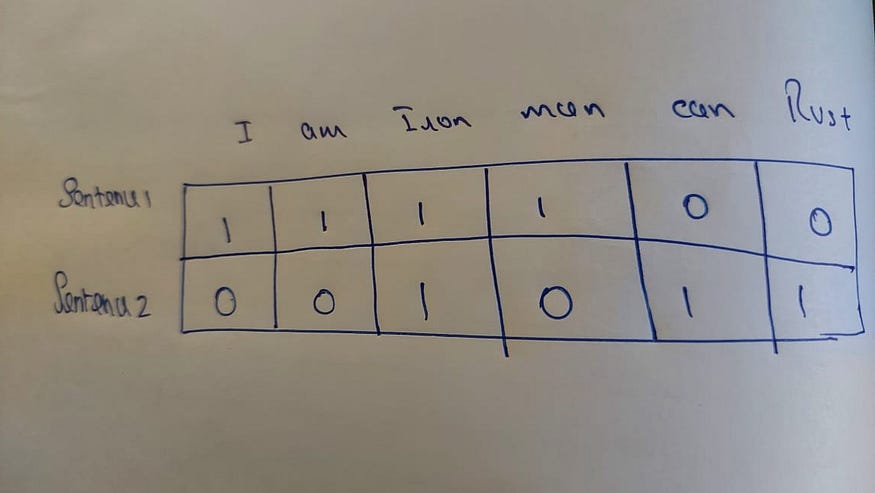 I am Iron man can Rust
Sentence 1 1 1 1 1 0 0
Sentence 2 0 0 1 0 1 1